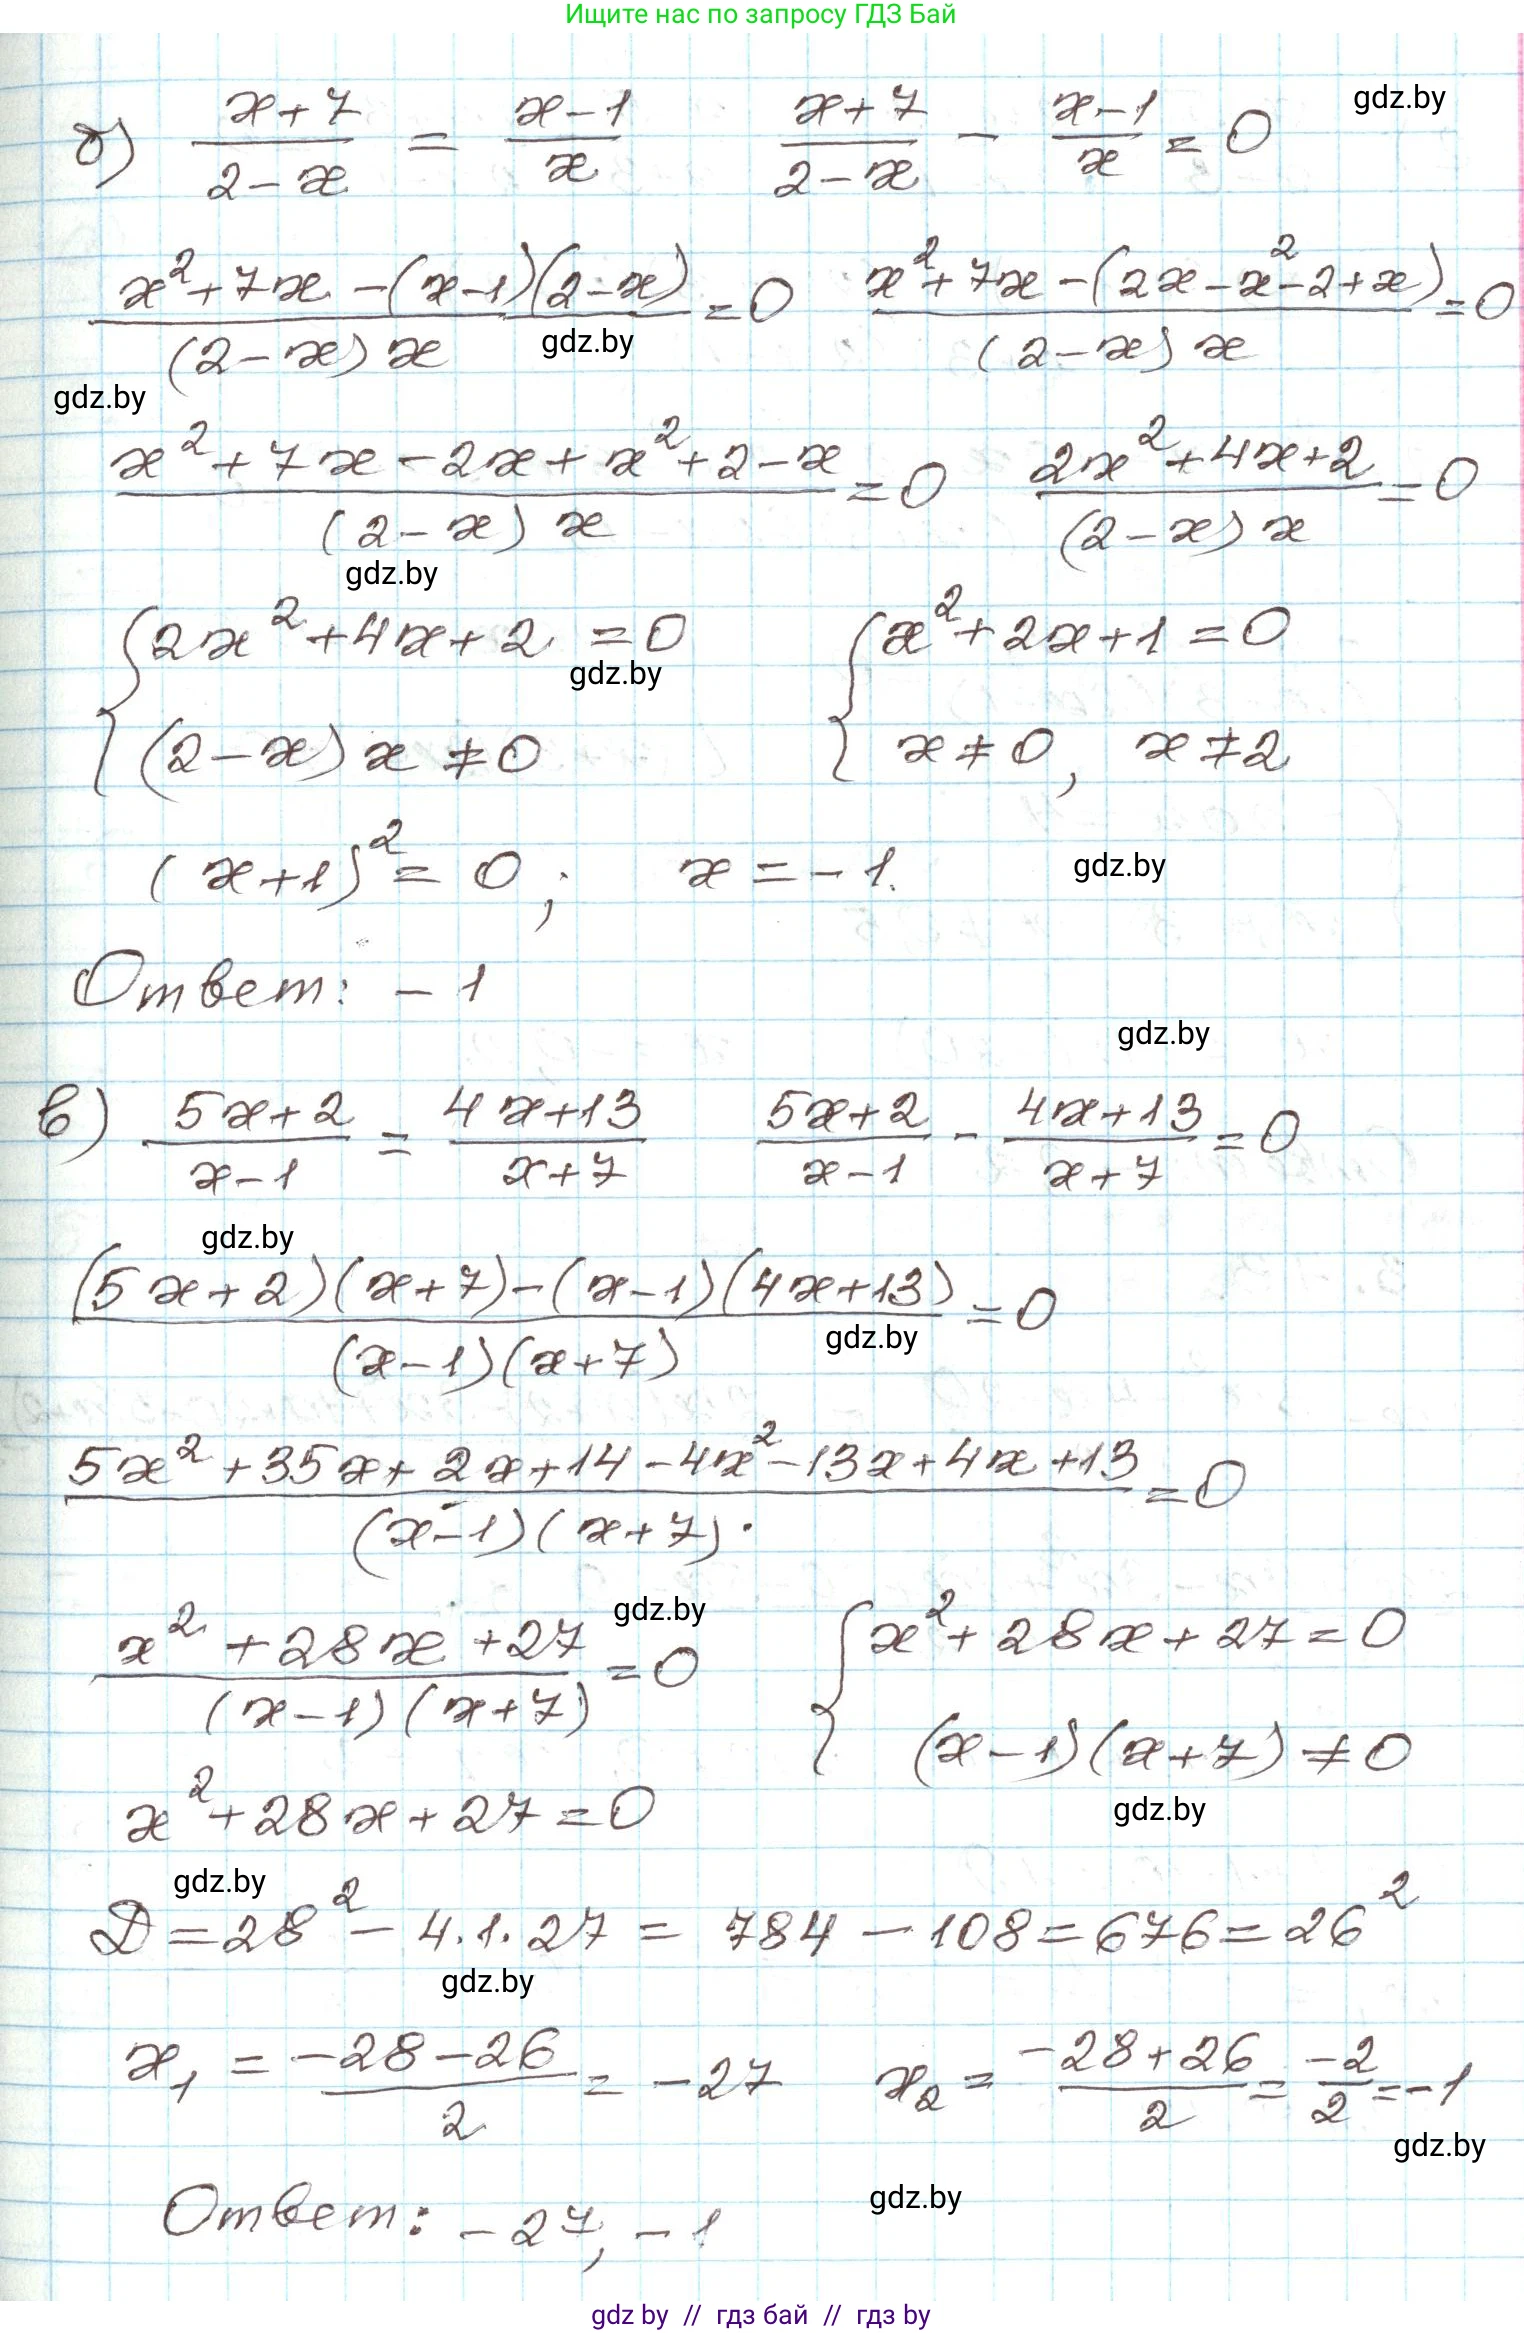 Ищите нас по запросу ГДЗ Бай
б) (x+7)/(2-x) = (x-1)/x    (x+7)/(2-x) - (x-1)/x = 0
gdz.by
(x²+7x-(x-1)(2-x))/((2-x)x) = 0    (x²+7x-(2x-x²-2+x))/((2-x)x) = 0
gdz.by
gdz.by
(x²+7x-2x+x²+2-x)/((2-x)x) = 0    (2x²+4x+2)/((2-x)x) = 0
gdz.by
{2x²+4x+2 = 0    {x²+2x+1 = 0
gdz.by
(2-x)x ≠ 0    x ≠ 0, x ≠ 2
(x+1)² = 0;    x = -1.
gdz.by
Ответ: -1
gdz.by
в) (5x+2)/(x-1) = (4x+13)/(x+7)    (5x+2)/(x-1) - (4x+13)/(x+7) = 0
gdz.by
((5x+2)(x+7)-(x-1)(4x+13))/((x-1)(x+7)) = 0
gdz.by
(5x²+35x+2x+14-4x²-13x+4x+13)/((x-1)(x+7)) = 0
gdz.by
(x²+28x+27)/((x-1)(x+7)) = 0    {x²+28x+27 = 0
(x-1)(x+7) ≠ 0
x²+28x+27 = 0
gdz.by
gdz.by
D = 28² - 4·1·27 = 784 - 108 = 676 = 26²
gdz.by
x₁ = (-28-26)/2 = -27    x₂ = (-28+26)/2 = -2/2 = -1
gdz.by
gdz.by
Ответ: -27, -1
gdz by // гдз бай // гдз by